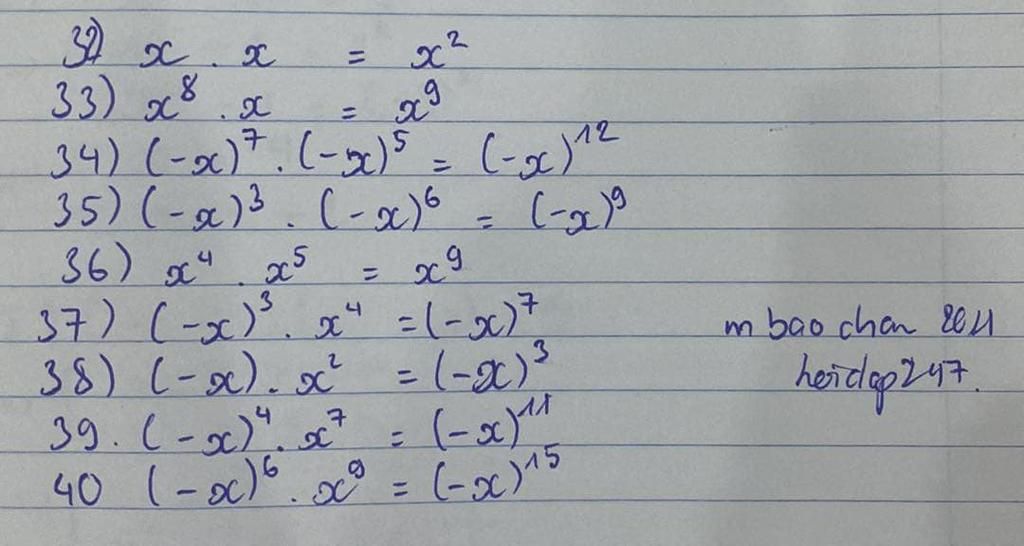 32) x . x = x²
33) x⁸ . x = x⁹
34) (-x)⁷ . (-x)⁵ = (-x)¹²
35) (-x)³ . (-x)⁶ = (-x)⁹
36) x⁴ . x⁵ = x⁹
37) (-x)³ . x⁴ = (-x)⁷
38) (-x) . x² = (-x)³
39. (-x)⁴ . x⁷ = (-x)¹¹
40 (-x)⁶ . x⁹ = (-x)¹⁵
m bao chan 2011
hoidap247.